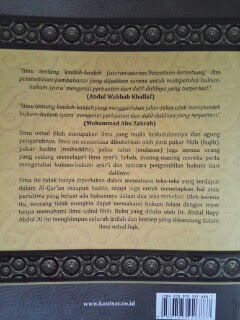 "Ilmu tentang kaidah-kaidah (aturan-aturan/ketentuan-ketentuan) dan
pembahasan-pembahasan yang dijadikan sarana untuk memperoleh
hukum-hukum syara' mengenai perbuatan dari dalil-dalilnya yang terperinci."
(Abdul Wahhab Khallaf)
"Ilmu tentang kaidah-kaidah yang menggariskan jalan-jalan untuk memperoleh
hukum-hukum syara' mengenai perbuatan dari dalil-dalilnya yang terperinci."
(Muhammad Abu Zahrah)
Ilmu ushul fikih merupakan ilmu yang mulia kedudukannya dan agung
pengaruhnya. Ilmu ini senantiasa dibutuhkan oleh para pakar fikih (faqih),
pakar hadits (muhaddits), pakar tafsir (mufassir) juga semua orang
yang sedang mempelajari ilmu syar'i. Sebab, masing-masing mereka perlu
mengetahui hukum-hukum syar'i dan tatacara pengambilan hukum dari
dalilnya.
Ilmu ini tidak hanya diperlukan dalam memahami teks-teks yang terdapat
dalam Al-Qur'an maupun hadits, tetapi juga untuk menetapkan hal atau
peristiwa yang belum ada hukumnya dalam dua teks tersebut. Oleh karena
itu, seorang tidak mungkin dapat memahami hukum Islam dengan tepat
tanpa memahami ilmu ushul fikih. Buku yang ditulis oleh Dr. Abdul Hayy
Abdul 'Al ini menghimpun seluruh istilah dan konsep yang dikandung dalam
ilmu ushul fiqh.
www.kautsar.co.id